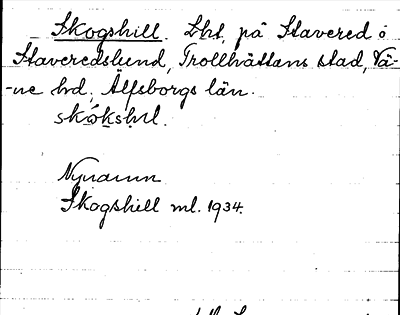 Skogshill. Lht. på Stavered o
Staveredslund, Trollhättans stad, Vä-
-ne hd, Älfsborgs län.
Nynamn
Skogshill ml. 1934.